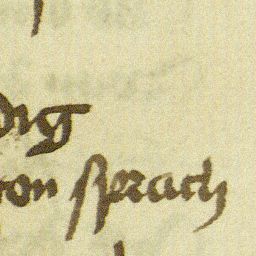 dig
ton sprach